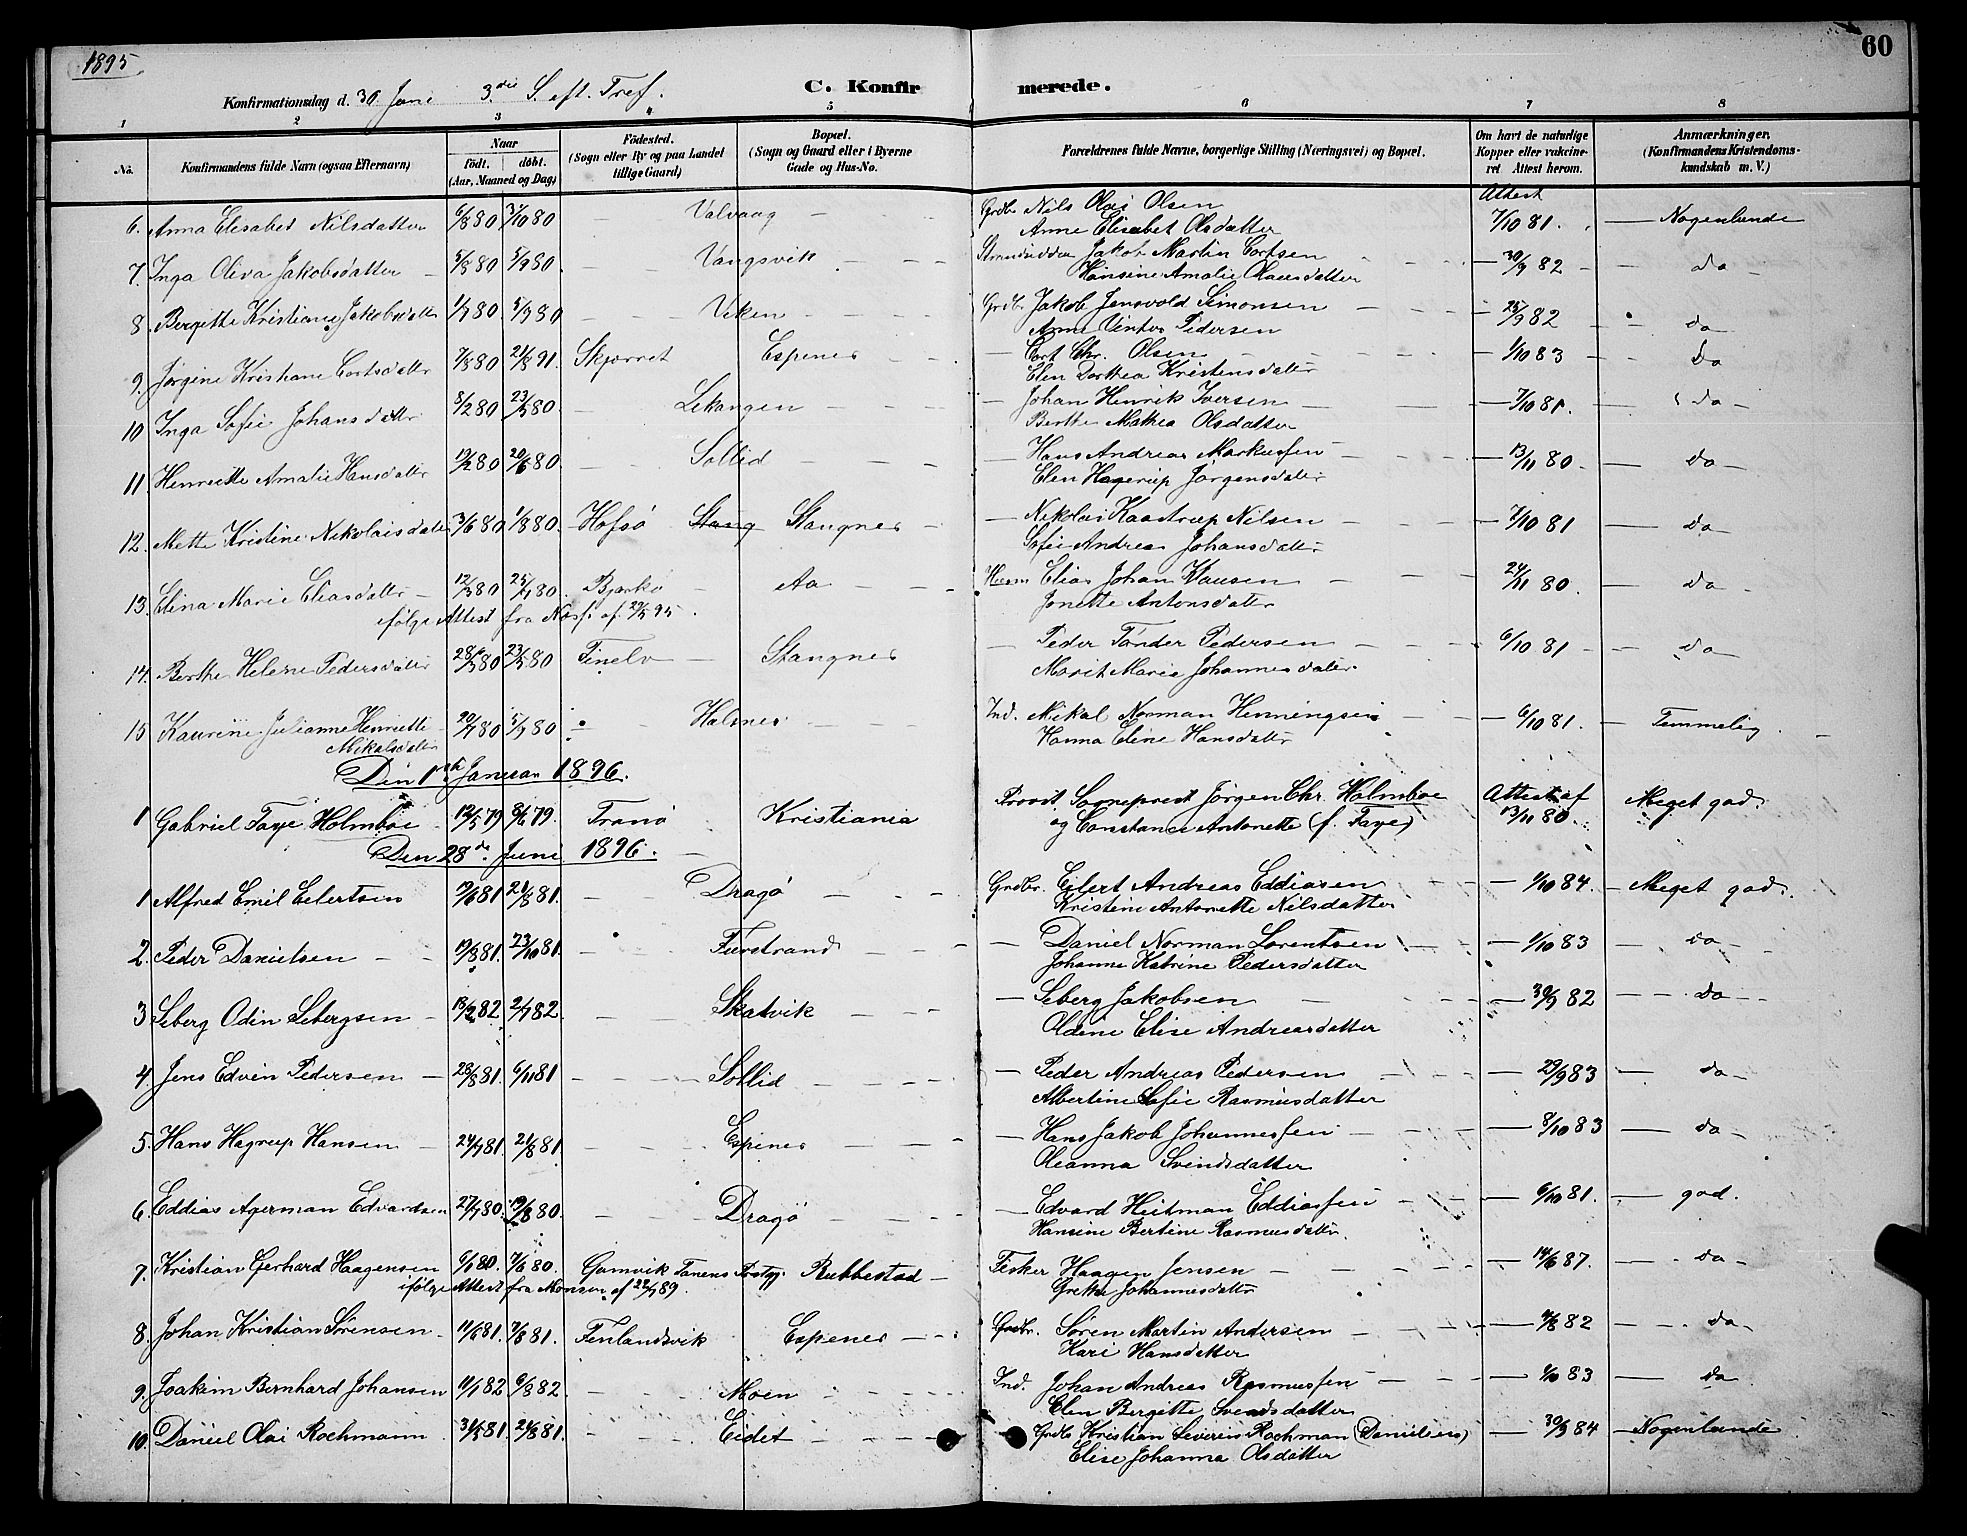 1895
60
Konfirmationsdag d. 30 Juni 3die S. eft. Tref.
C. Konfirmerede.
1 2 3 4 5 6 7 8
No. Konfirmandens fulde Navn (ogsaa Efternavn)
Naar
født. døbt.
(Aar, Maaned og Dag)
Födested.
(Sogn eller By og paa Landet
tillige Gaard)
Bopæl.
(Sogn og Gaard eller i Byerne
Gade og Hus-No.
Forældrenes fulde Navne, borgerlige Stilling (Næringsvei) og Bopæl.
Om havt de naturlige
Kopper eller vakcine-
ret Attest herom.
Anmærkninger.
(Konfirmandens Kristendoms-
kundskab m. V.)
6. Anna Elisabet Nilsdatter 6/8 80 3/10 80 — Valvaag — Grdbr Nils Olai Olsen Attest 7/10 81. — Nogenlunde
Anne Elisabet Olsdatter
7. Inga Oliva Jakobsdatter 5/8 80 5/9 80 — Vangsvik — Strandsidder Jakob Martin Cortsen — 30/9 82 — do
Hansine Amalie Olausdatter
8. Bergette Kristiane Jakobsdatter 1/7 80 5/9 80 — Viken — Grdbr. Jakob Jensvold Simonsen — 25/9 82 — do
Anne Vinter Pedersen
9. Jørgine Kristiane Cortsdatter 7/8 80 21/8 91 Skjærret Espenes — Cort Chr. Olsen — 1/10 83 — Do
Elen Dorthea Kristensdatter
10 Inga Sofie Johansdatter 8/2 80 23/5 80 — Lekangen — Johan Henrik Iversen — 7/10 81. — do
Berthe Mathea Olsdatter
11. Henriette Amalie Hansdatter 19/2 80 20/6 80. — Sollid — Hans Andreas Markussen — 13/11 80 — do
Elen Hagerup Jørgensdatter
12. Mette Kristine Nikolaisdatter 3/6 80 1/8 80. Hofsø Stang Stangnes — Nikolai Kaastrup Nilsen — 7/10 81 — do
Sofie Andrea Johansdatter
13. Elina Marie Eliasdatter 12/3 80 25/4 80. Bjarkø Aa — Elias Johan Klausen — 24/11 80. — do
ifølge Attest fra af 29/5 95. Jonette Antonsdatter
14. Berthe Helene Pedersdatter 28/3 80 23/5 80 Finelv — Stangnes — Peder Tønder Pedersen — 6/10 81 — do
Marit Marie Johannesdatter
15 Kaurine Julianne Henriette 20/7 80 5/9 80 — Halsnes — Ind. Mikal Norman Henningsen — 6/10 81. — Temmelig
Mikalsdatter Hanna Eline Hansdatter
Den 1ste Januar 1896.
1 Gabriel Faye Holmboe 12/5 79 8/6 79. Tranø Kristiania Provst, Sogneprest Jørgen Chr. Holmboe Attest af Meget god.
og Constance Antonette (f. Faye) 13/11 80
Den 28de Juni 1896.
1 Alfred Emil Eilertsen 19/6 81 21/8 81. — Dragø — Grdbr. Eilert Andreas Eddiasen — 1/10 84. — Meget god.
Kristine Antonette Nilsdatter
2. Peder Danielsen — 19/8 81. 23/10 81. — Furstrand — Daniel Norman Lorentsen — 1/10 83 — do
Johanne Katrine Pedersdatter
3 Seberg Odin Sebergsen — 13/2 82 2/7 82 — Skatvik — Seberg Jakobsen — 30/9 82 — do
Oldine Elise Andreasdatter
4. Jens Edvin Pedersen — 28/8 81. 6/11 81 — Sollid — Peder Andreas Pedersen — 29/9 83 — do
Albertine Sofie Rasmusdatter
5. Hans Hagrup Hansen — 24/7 81. 21/8 81. — Espenes — Hans Jakob Johannessen — 8/10 83 — do
Oleanna Svendsdatter
6. Eddias Agerman Edvardsen 27/7 80. 19/8 80. — Dragø — Edvard Hutman Eddiassen — 6/10 81. — god.
Hansine Bertine Rasmusdatter.
7. Kristian Gerhard Haagensen 6/1 80. 7/6 80. Gamvik Tanens Prstgj. Rubbestad — Fisker Haagen Jensen — 14/6 87. — do
ifølge Attest fra af 22/7 89. Grethe Johannesdatter
8. Johan Kristian Sørensen 11/6 81. 7/8 81. Finlandsvik Espenes — Grdbr. Søren Martin Andersen — 82 — do
Kari Hansdatter
9. Joakim Bernhard Johansen 11/1 82 6/8 82 — Moen — Ind. Johan Andreas Rasmussen — 1/10 83 — do
Elen Bergitte Svendsdatter
10. Daniel Olai Rochmann 31/5 81. 21/8 81. — Eidet — Grdbr Kristian Severin Rochman (Danielsen) — 30/9 84 — Nogenlunde
Elise Johanna Olsdatter